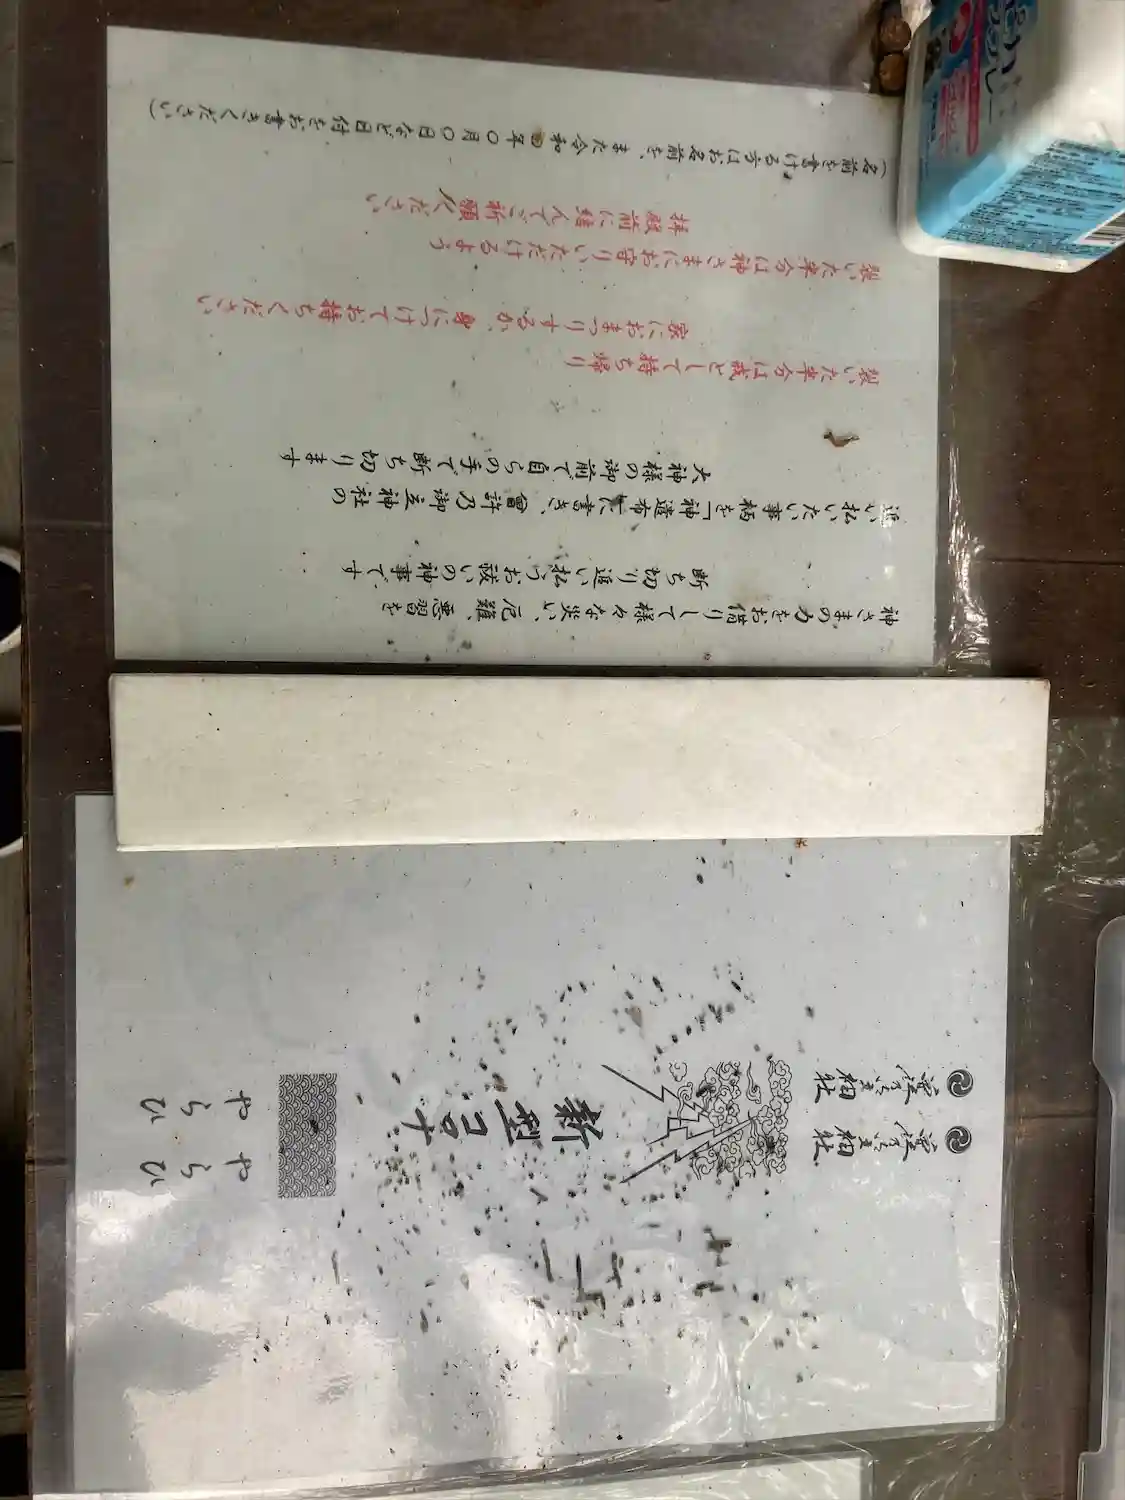 神さまの力をお借りして様々な災い、厄難、悪習を
断ち切り追い払うお祓いの神事です
追い払いたい事柄を「神遣布」に書き、曾許乃御立神社の
大神様の御前で自らの手で断ち切ります
裂いた半分は戒として持ち帰り
家におまつりするか、身につけてお持ちください
裂いた半分は神さまにお守りいただけるよう
拝殿前に結んでご祈願ください
(名前を書ける方はお名前を、また令和〇年〇月〇日など日付をお書きください)
曾許乃御立神社
曾許乃御立神社
新型コロナ
やらひ
やらひ